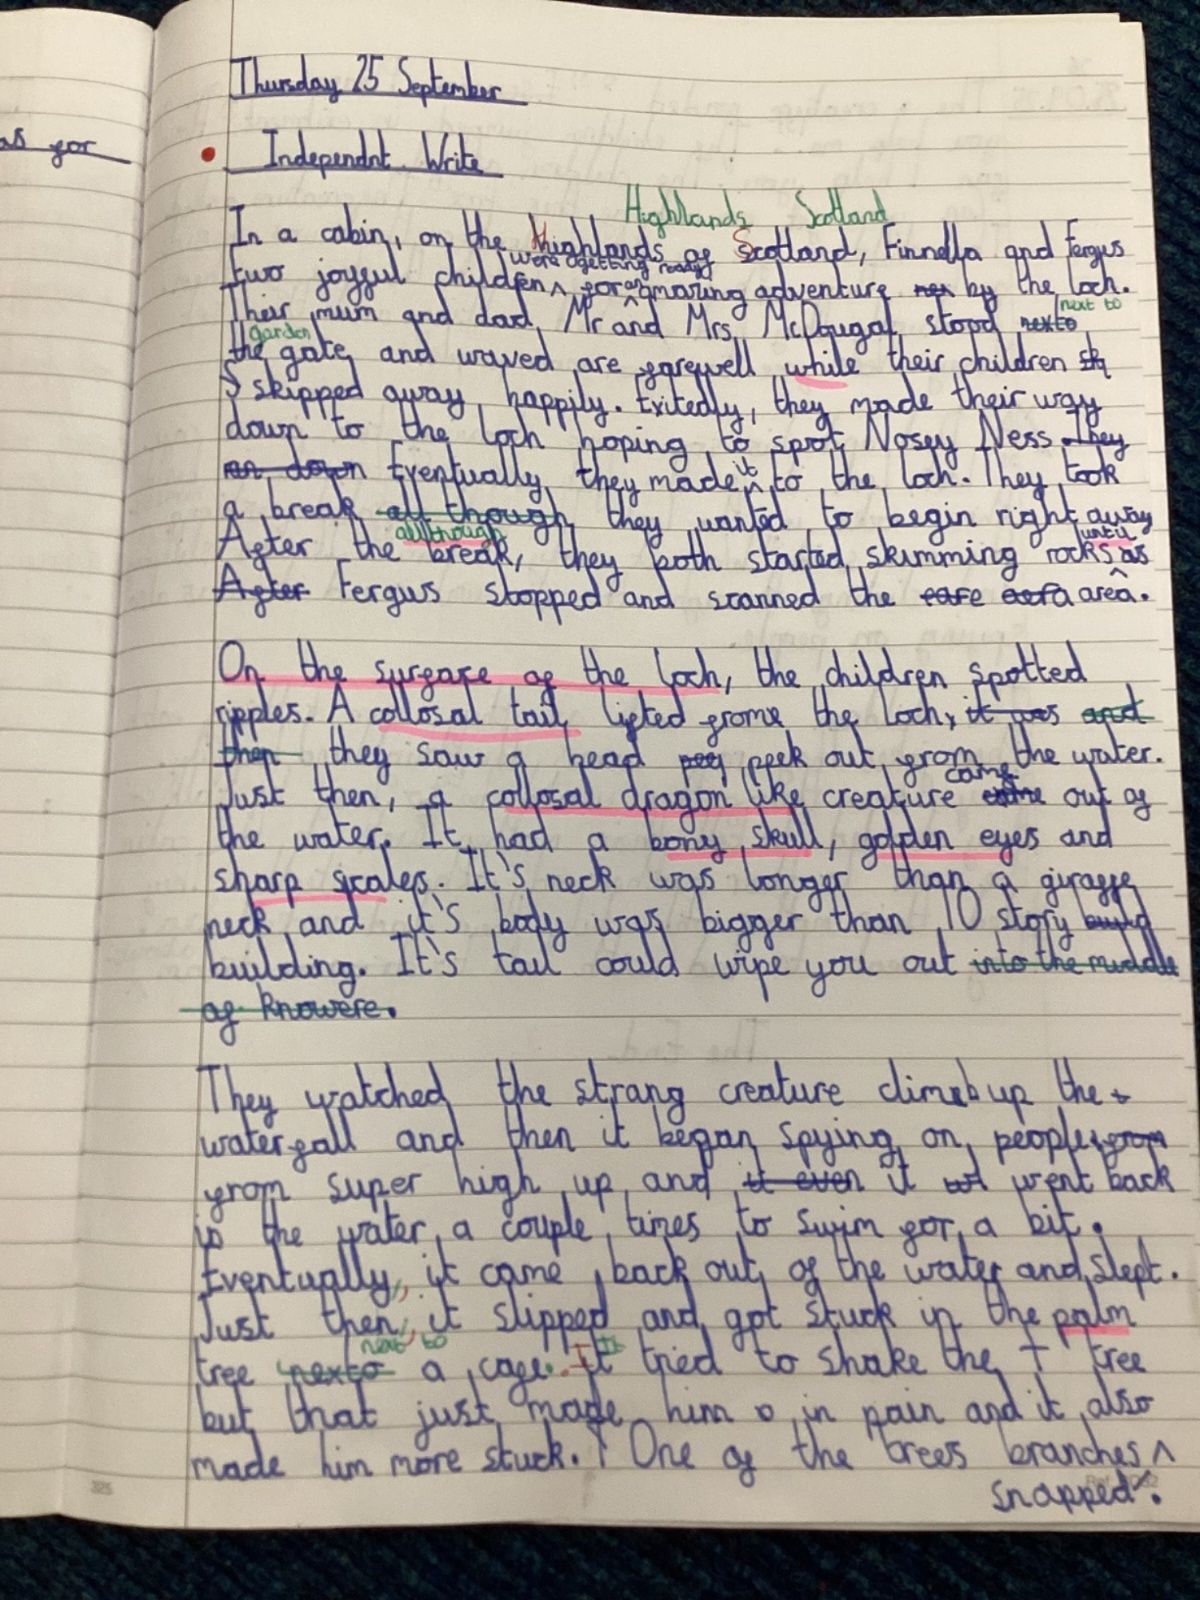 as for
Thursday 25 September
Independnt Write
Highlands Scotland
In a cabin, on the Highlands of Scotland, Finnella and Fergus
were getting ready
two joyful children ^ for an amazing adventure by the loch.
Their mum and dad, Mr and Mrs McDougal stood nexto next to
garden
the gate, and waved are farewell while their children sk
skipped away happily. Exitedly, they made their way
down to the loch hoping to spot Nosey Ness. They
ran down Eventually they made it to the loch. They took
a break all though they wanted to begin right away
allthough
until
After the break, they both started skimming rocks as
After Fergus stopped and scanned the area.
On the surface of the loch, the children spotted
ripples. A collosal tail lifted frome the loch, it was and
then they saw a head peek out from the water.
came
Just then, a collosal dragon like creature came out of
the water. It had a bony skull, golden eyes and
sharp scales. It's neck was longer than a giraffe
neck and it's body was bigger than 10 story build
building. It's tail could wipe you out into the middle
of knowere.
They watched the strang creature climb up the
waterfall and then it began spying on people from
from super high up and it even it went back
in the water a couple times to swim for a bit.
Eventually, it came back out of the water and slept.
Just then, it slipped and got stuck in the palm
next to It
tree nexto a cage. It tried to shake the t tree
but that just made him in pain and it also
made him more stuck. One of the trees branches ^
snapped.